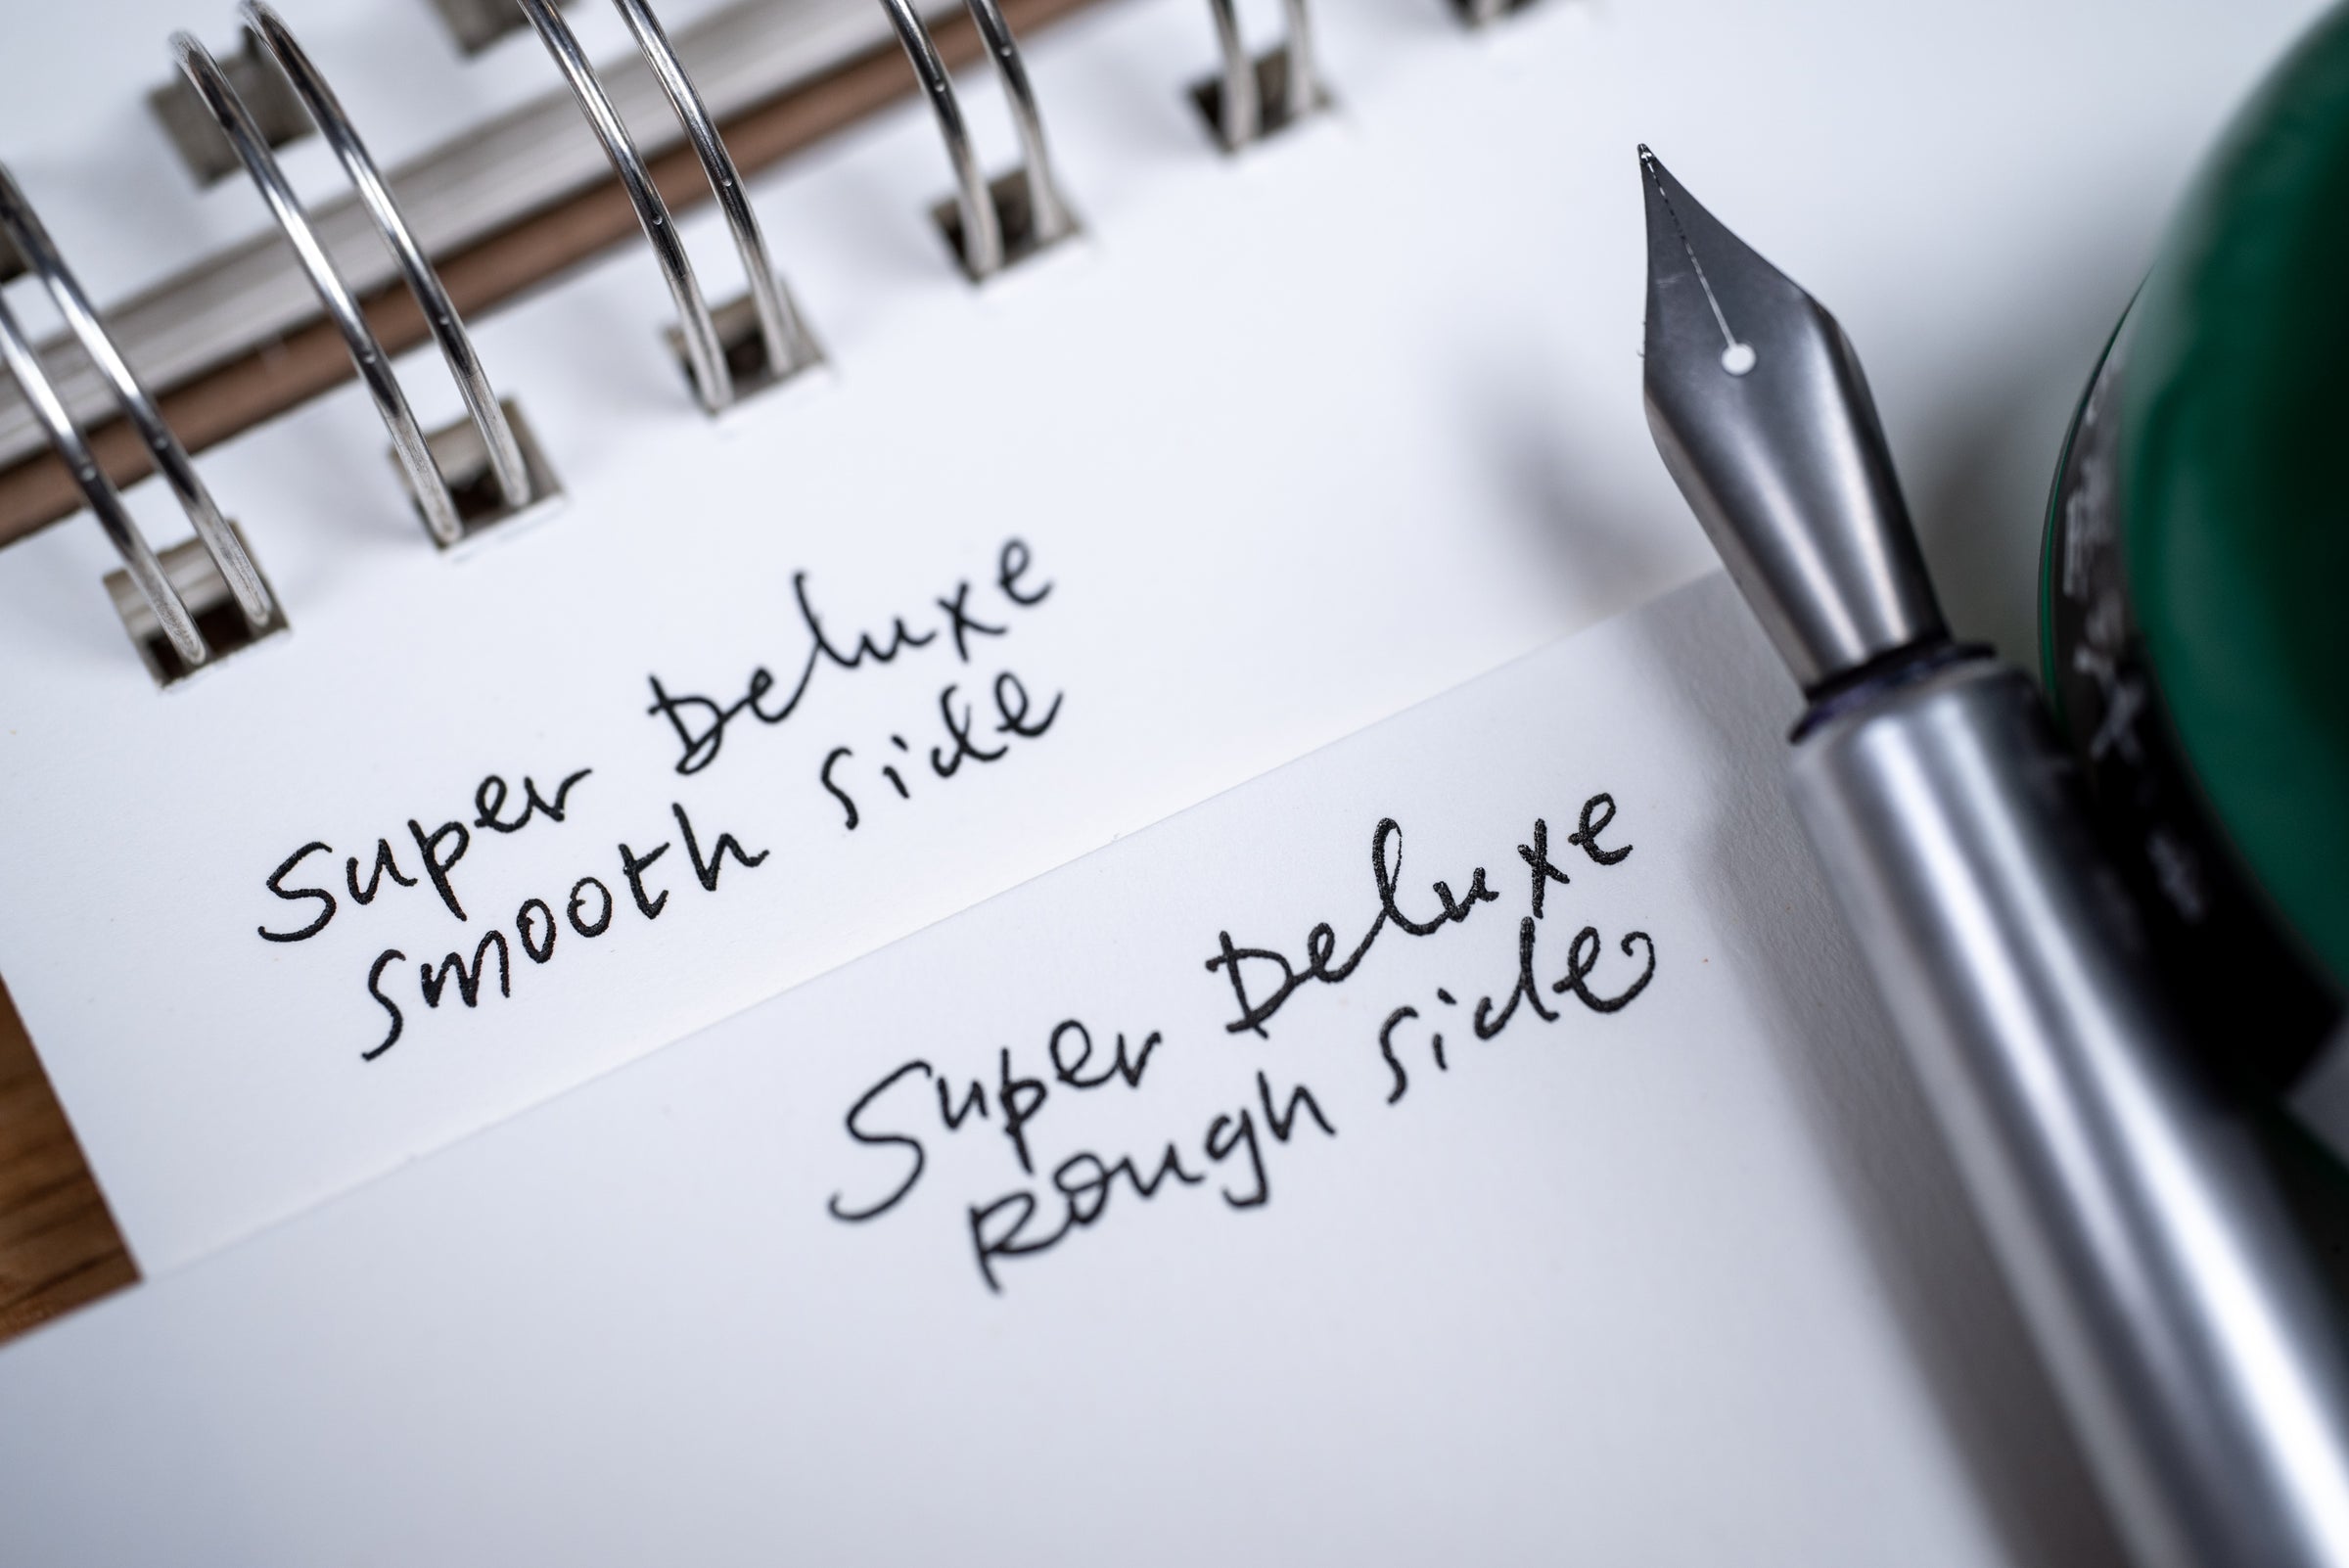 Super Deluxe
Smooth Side
Super Deluxe
Rough Side